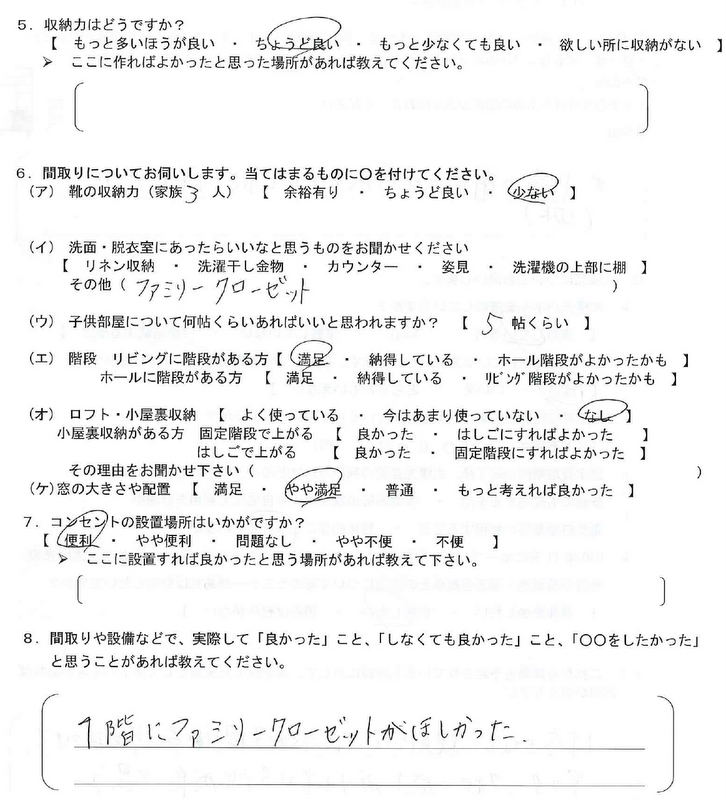 ５．収納力はどうですか？
【　もっと多いほうが良い　・　ちょうど良い　・　もっと少なくても良い　・　欲しい所に収納がない　】
➢　ここに作ればよかったと思った場所があれば教えてください。
６．間取りについてお伺いします。当てはまるものに〇を付けてください。
（ア）　靴の収納力（家族 3 人）　【　余裕有り　・　ちょうど良い　・　少ない　】
（イ）　洗面・脱衣室にあったらいいなと思うものをお聞かせください
【　リネン収納　・　洗濯干し金物　・　カウンター　・　姿見　・　洗濯機の上部に棚　】
その他（ ファミリークローゼット ）
（ウ）　子供部屋について何帖くらいあればいいと思われますか？　【　5　帖くらい　】
（エ）　階段　リビングに階段がある方【　満足　・　納得している　・　ホール階段がよかったかも　】
ホールに階段がある方　【　満足　・　納得している　・　ﾘﾋﾞﾝｸﾞ階段がよかったかも　】
（オ）　ロフト・小屋裏収納　【　よく使っている　・　今はあまり使っていない　・　なし　】
小屋裏収納がある方　固定階段で上がる　【　良かった　・　はしごにすればよかった　】
はしごで上がる　【　良かった　・　固定階段にすればよかった　】
その理由をお聞かせ下さい（　）
（ケ）窓の大きさや配置　【　満足　・　やや満足　・　普通　・　もっと考えれば良かった　】
７．コンセントの設置場所はいかがですか？
【　便利　・　やや便利　・　問題なし　・　やや不便　・　不便　】
➢　ここに設置すれば良かったと思う場所があれば教えて下さい。
８．間取りや設備などで、実際して「良かった」こと、「しなくても良かった」こと、「〇〇をしたかった」
と思うことがあれば教えてください。
1階にファミリークローゼットがほしかった.